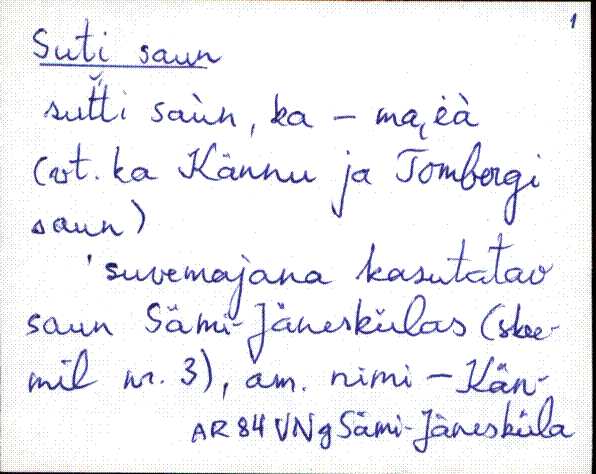 1
Suti saun
sut̆t̆i saùn, ka – ma, èà
(vt. ka Kännu ja Tombergi
saun)
'suvemajana kasutatav
saun Sämi-Jäneskülas (skee-
mil nr. 3), am. nimi – Kän-
AR 84 VNg Sämi-Jänesküla